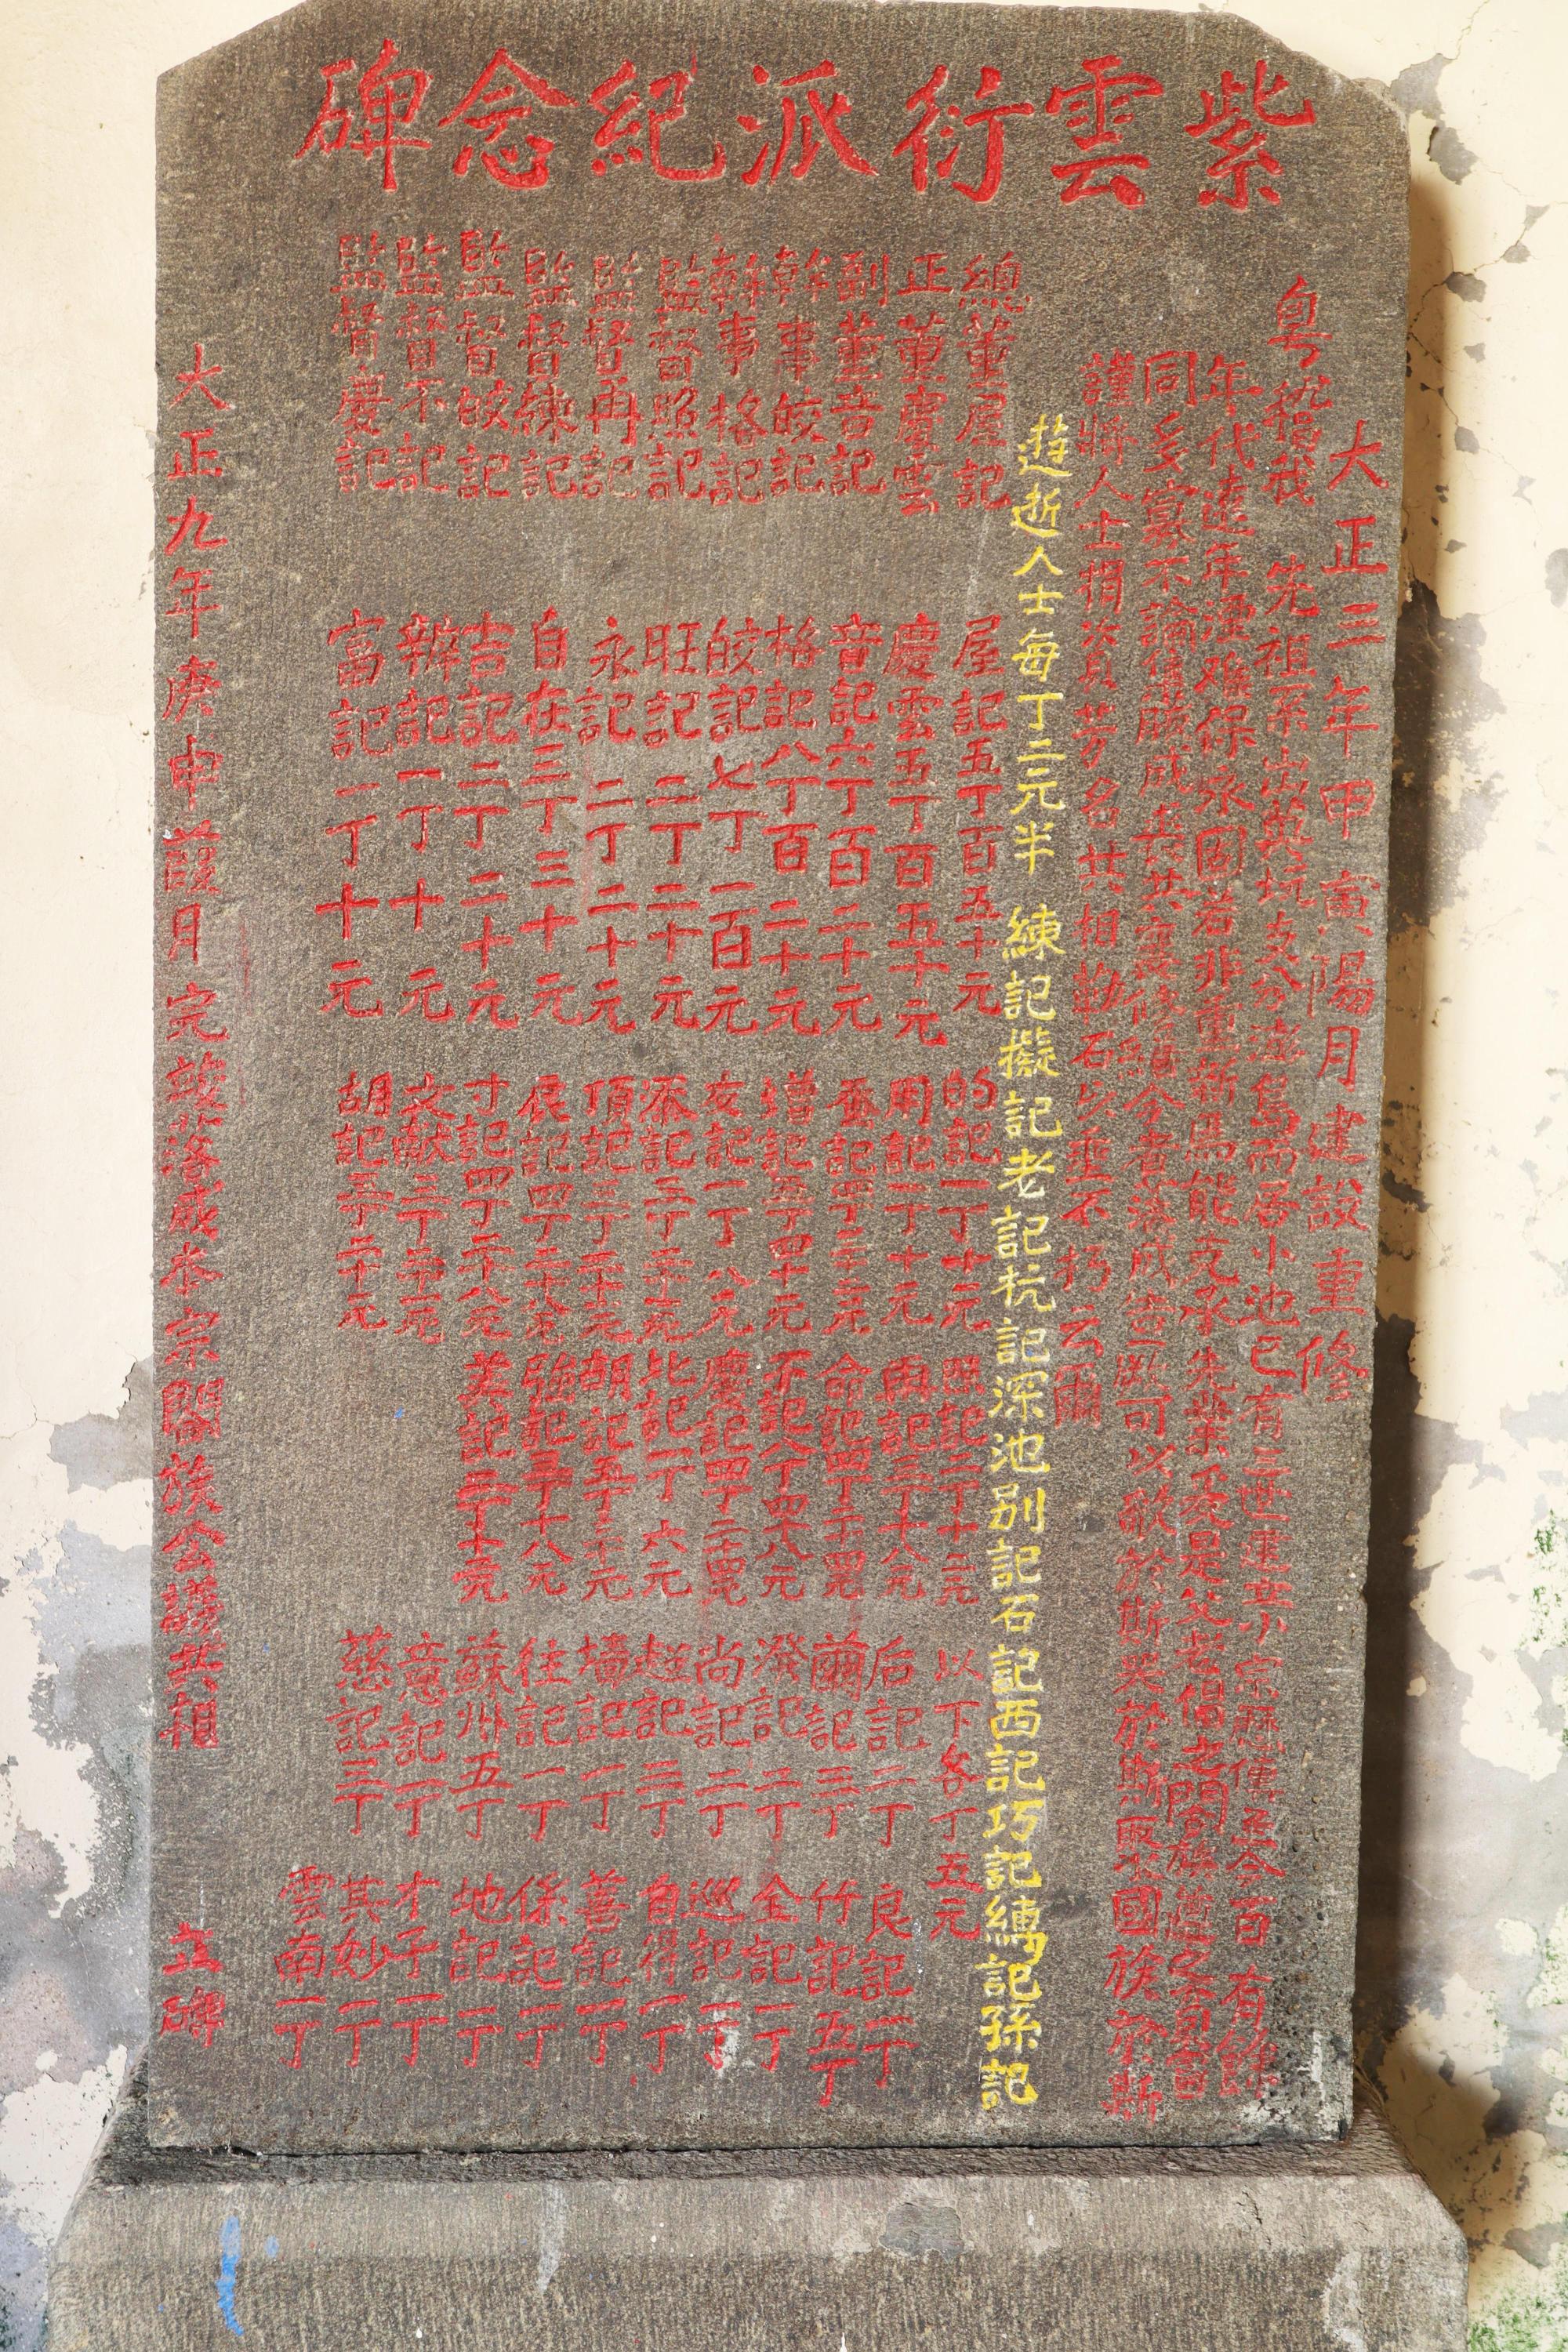 紫雲衍派紀念碑
大正三年甲寅陽月建設重修
粵稽我 先祖系出英坑支分澎島而居小池已有三世建立小宗 傳至今百有餘
年代遠年湮难保永固若非重新馬能克承先業 是父老倡之闔族
同多寡不論集腋成 共 修 今者落成 可以歌於斯哭於斯聚國族於斯
謹將人士捐 芳名共相勒石以垂不朽云爾
遊逝人士每丁二元半 練記擬記老記杭記深池別記石記西記巧記縛記孫記
總董屋記
正董慶雲
副董音記
幹事皎記
幹事格記
監督照記
監督再記
監督練記
監督皎記
監督不記
監督慶記
屋記五丁百五十元
慶雲五丁百五十元
音記六丁百二十元
格記八丁百二十元
皎記七丁一百元
旺記二丁二十元
永記二丁二十元
自在三丁三十元
吉記二丁二十元
辦記一丁十元
富記一丁十元
的記一丁十元
用記一丁十元
蚕記四丁 元
增記五丁四十元
女記一丁八元
不記三丁二十元
頂記三丁二十元
展記四丁二十八元
寸記四丁二十八元
文献三丁 元
胡記三丁二十元
照記二丁十二元
再記三丁十八元
命記四丁二十四元
不記八丁四十八元
慶記四丁二十四元
比記一丁六元
胡記五丁三十元
強記三丁十八元
美記二丁十二元
以下各丁五元
后記二丁
爾記三丁
發記二丁
尚記二丁
趁記三丁
墻記一丁
往記一丁
蘇州五丁
意記一丁
慈記三丁
良記一丁
竹記五丁
全記一丁
巡記一丁
自得一丁
善記一丁
係記一丁
地記一丁
才子一丁
其妙一丁
雲南一丁
大正九年庚申葭月完竣落成本宗闔族公議共相 立碑